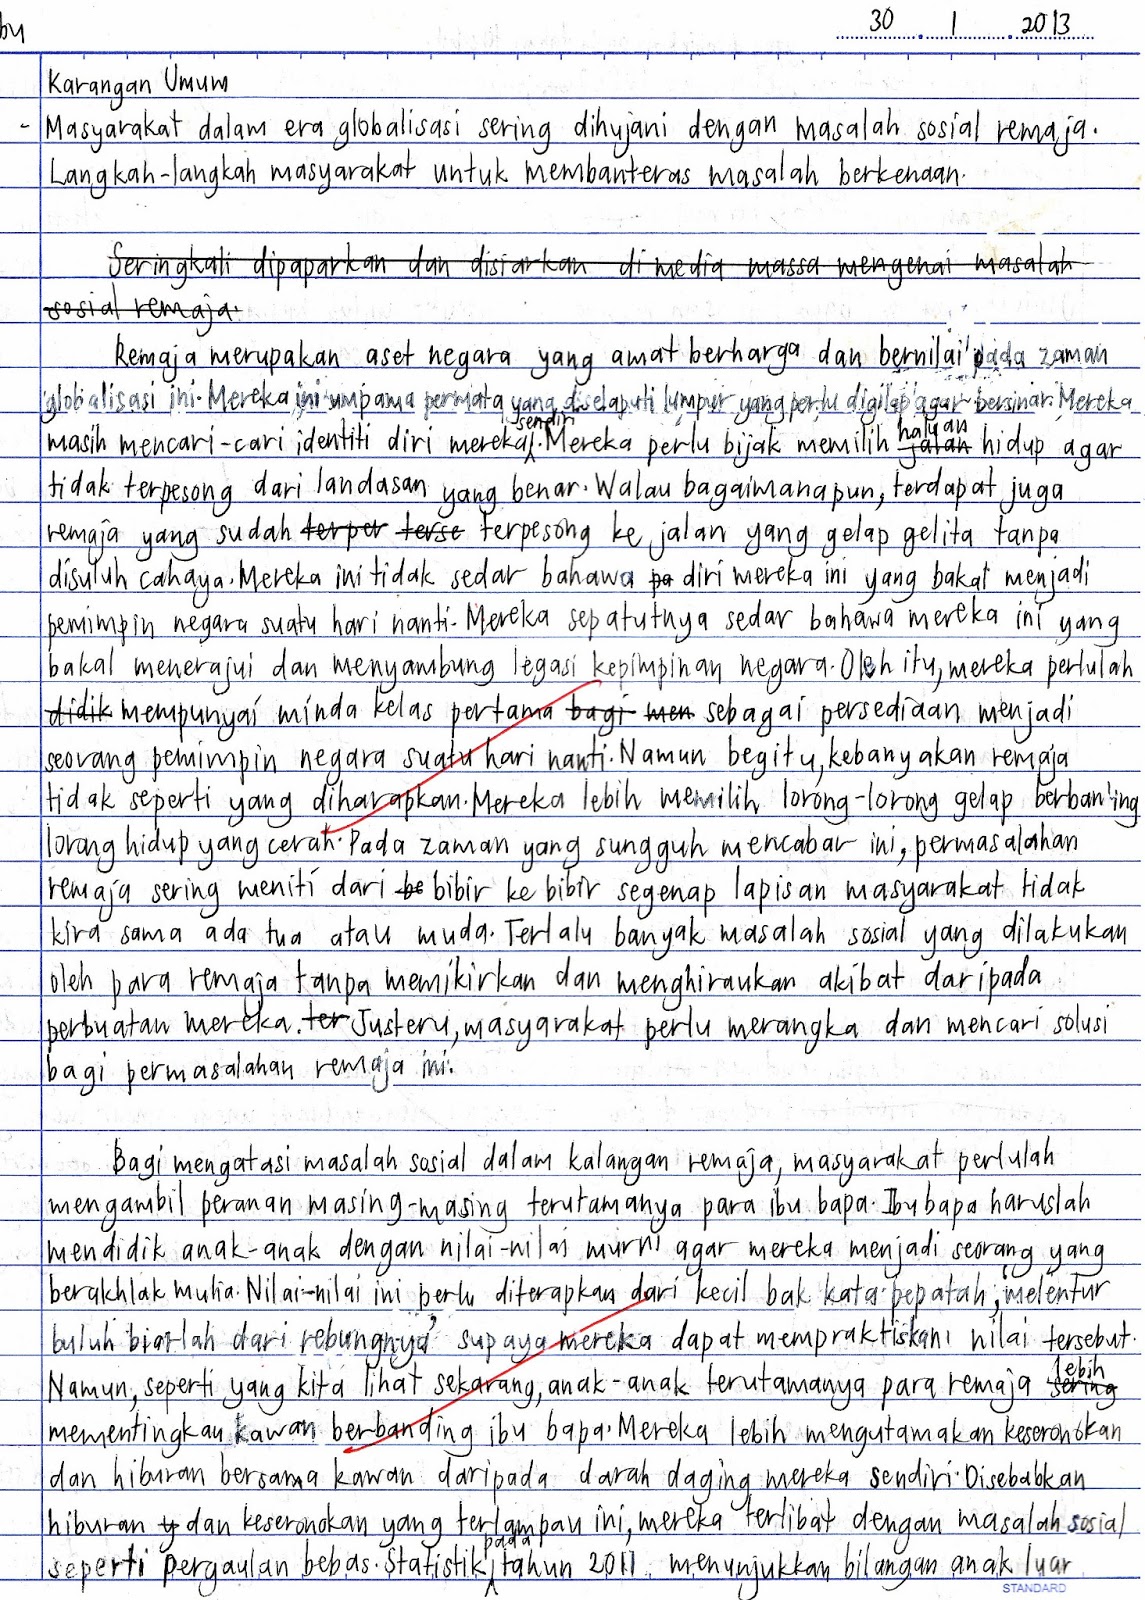 bu
30 . 1 . 2013
Karangan Umum
- Masyarakat dalam era globalisasi sering dihujani dengan masalah sosial remaja.
Langkah-langkah masyarakat untuk membanteras masalah berkenaan.
Seringkali dipaparkan dan disiarkan di media massa mengenai masalah
sosial remaja.
Remaja merupakan aset negara yang amat berharga dan bernilai pada zaman
globalisasi ini. Mereka ini umpama permata yang diselaputi lumpur yang perlu digilap agar bersinar. Mereka
masih mencari-cari identiti diri mereka sendiri. Mereka perlu bijak memilih jalan haluan hidup agar
tidak terpesong dari landasan yang benar. Walau bagaimanapun, terdapat juga
remaja yang sudah terper terse terpesong ke jalan yang gelap gelita tanpa
disuluh cahaya. Mereka ini tidak sedar bahawa pa diri mereka ini yang bakal menjadi
pemimpin negara suatu hari nanti. Mereka sepatutnya sedar bahawa mereka ini yang
bakal menerajui dan menyambung legasi kepimpinan negara. Oleh itu, mereka perlulah
didik mempunyai minda kelas pertama bagi men sebagai persediaan menjadi
seorang pemimpin negara suatu hari nanti. Namun begitu, kebanyakan remaja
tidak seperti yang diharapkan. Mereka lebih memilih lorong-lorong gelap berbanding
lorong hidup yang cerah. Pada zaman yang sungguh mencabar ini, permasalahan
remaja sering meniti dari be bibir ke bibir segenap lapisan masyarakat tidak
kira sama ada tua atau muda. Terlalu banyak masalah sosial yang dilakukan
oleh para remaja tanpa memikirkan dan menghiraukan akibat daripada
perbuatan mereka. ter Justeru, masyarakat perlu merangka dan mencari solusi
bagi permasalahan remaja ini.
Bagi mengatasi masalah sosial dalam kalangan remaja, masyarakat perlulah
mengambil peranan masing-masing terutamanya para ibu bapa. Ibu bapa haruslah
mendidik anak-anak dengan nilai-nilai murni agar mereka menjadi seorang yang
berakhlak mulia. Nilai-nilai ini perlu diterapkan dari kecil bak kata pepatah, 'melentur
buluh biarlah dari rebungnya' supaya mereka dapat mempraktiskan nilai tersebut.
Namun, seperti yang kita lihat sekarang, anak-anak terutamanya para remaja sering lebih
mementingkan kawan berbanding ibu bapa. Mereka lebih mengutamakan keseronokan
dan hiburan bersama kawan daripada darah daging mereka sendiri. Disebabkan
hiburan y dan keseronokan yang terlampau ini, mereka terlibat dengan masalah sosial
seperti pergaulan bebas. Statistik pada tahun 2011 menunjukkan bilangan anak luar
STANDARD